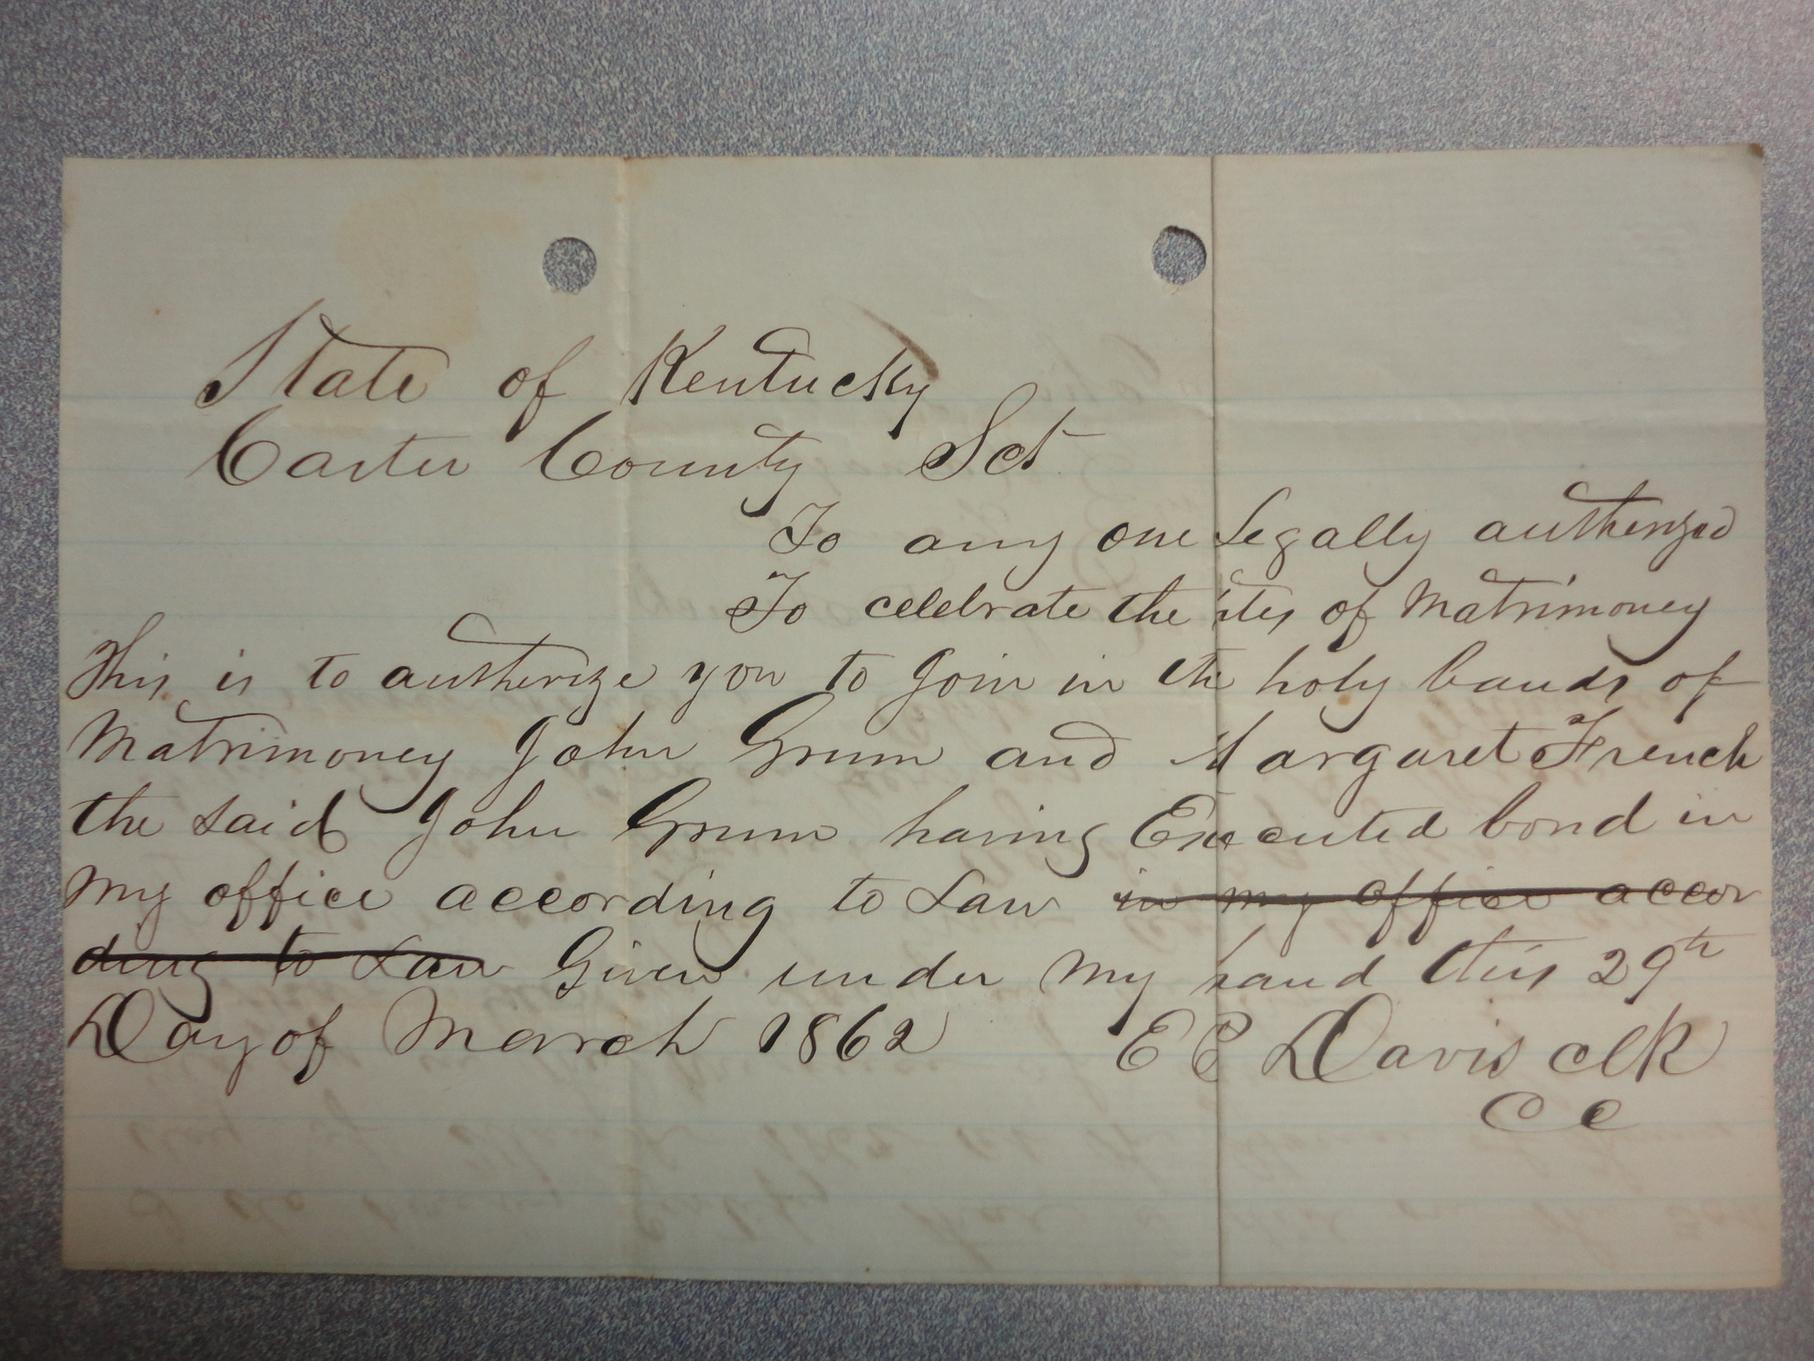 State of Kentucky
Carter County Sct
To any one Legally autherized
To celebrate the rites of Matrimoney
This is to autherize you to Join in the holy bands of
Matrimoney John Grum and Margaret French
the said John Grum having Executed bond in
My office according to Law in my office accor
ding to Law Given under My hand this 29th
Day of March 1862 E E Davis clk
C C